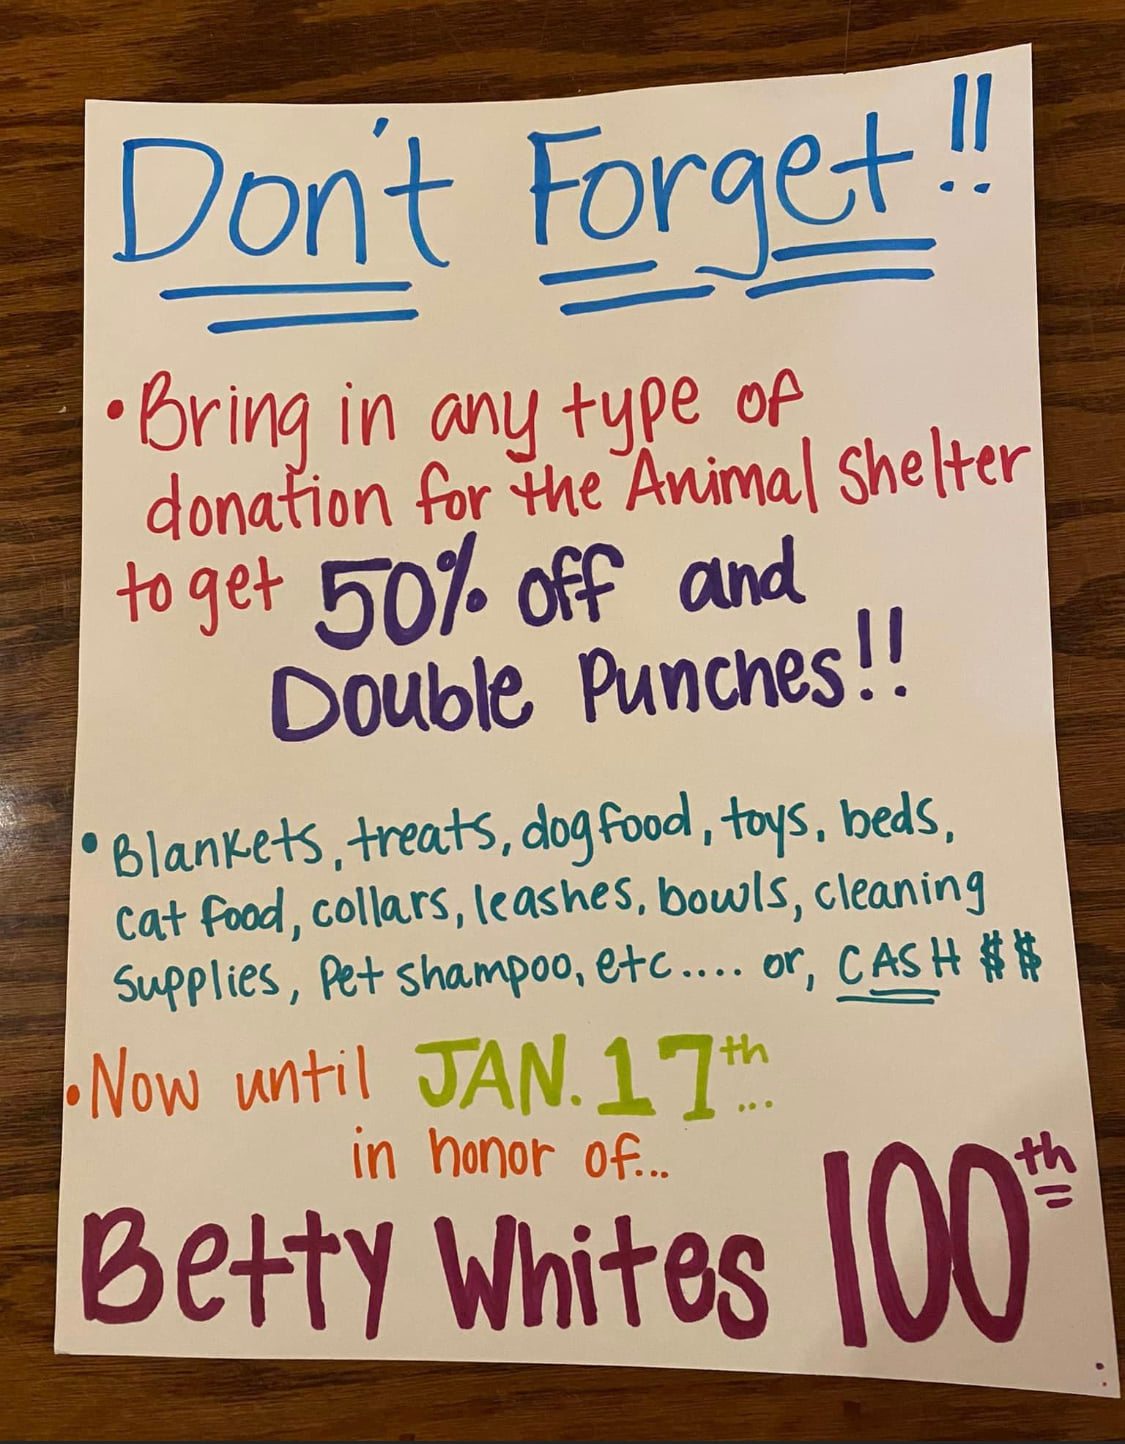 Don't Forget!!
• Bring in any type of
donation for the Animal Shelter
to get 50% off and
Double Punches!!
• Blankets, treats, dog food, toys, beds,
cat food, collars, leashes, bowls, cleaning
supplies, Pet shampoo, etc.... or, CASH $$
• Now until JAN. 17th...
in honor of...
Betty Whites 100th